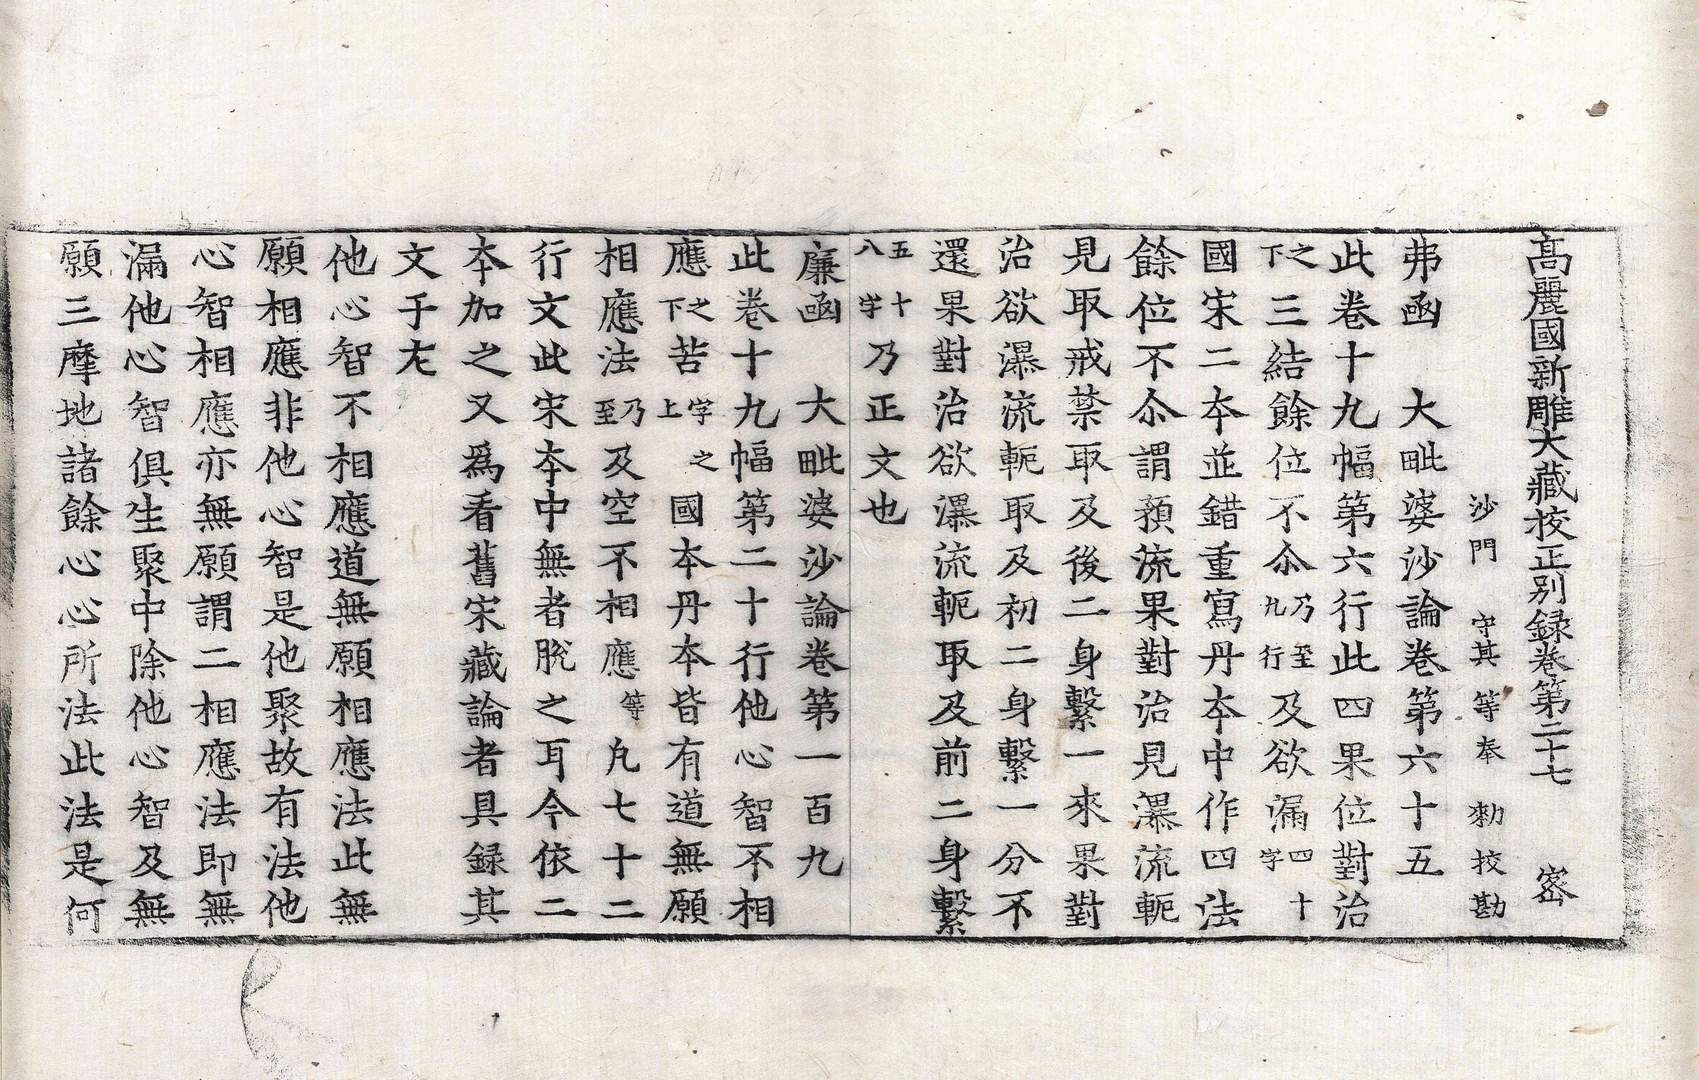 高麗國新雕大藏校正別録卷第二十七　密
沙門　守其　等奉　勅校勘
弗函　大毗婆沙論卷第六十五
此卷十九幅第六行此四果位對治
之下三結餘位不尒乃至九行及欲漏四十字
國宋二夲並錯重寫丹夲中作四法
餘位不尒謂預流果對治見瀑流軛
見取戒禁取及後二身繫一來果對
治欲瀑流軛取及初二身繫一分不
還果對治欲瀑流軛取及前二身繫
五十八字乃正文也
廉函　大毗婆沙論卷第一百九
此卷十九幅第二十行他心智不相
應之下苦字之上國夲丹夲皆有道無願
相應法乃至及空不相應等凡七十二
行文此宋夲中無者脫之耳今依二
夲加之又爲看舊宋藏論者具録其
文于左
他心智不相應道無願相應法此無
願相應非他心智是他聚故有法他
心智相應亦無願謂二相應法即無
漏他心智俱生聚中除他心智及無
願三摩地諸餘心心所法此法是何